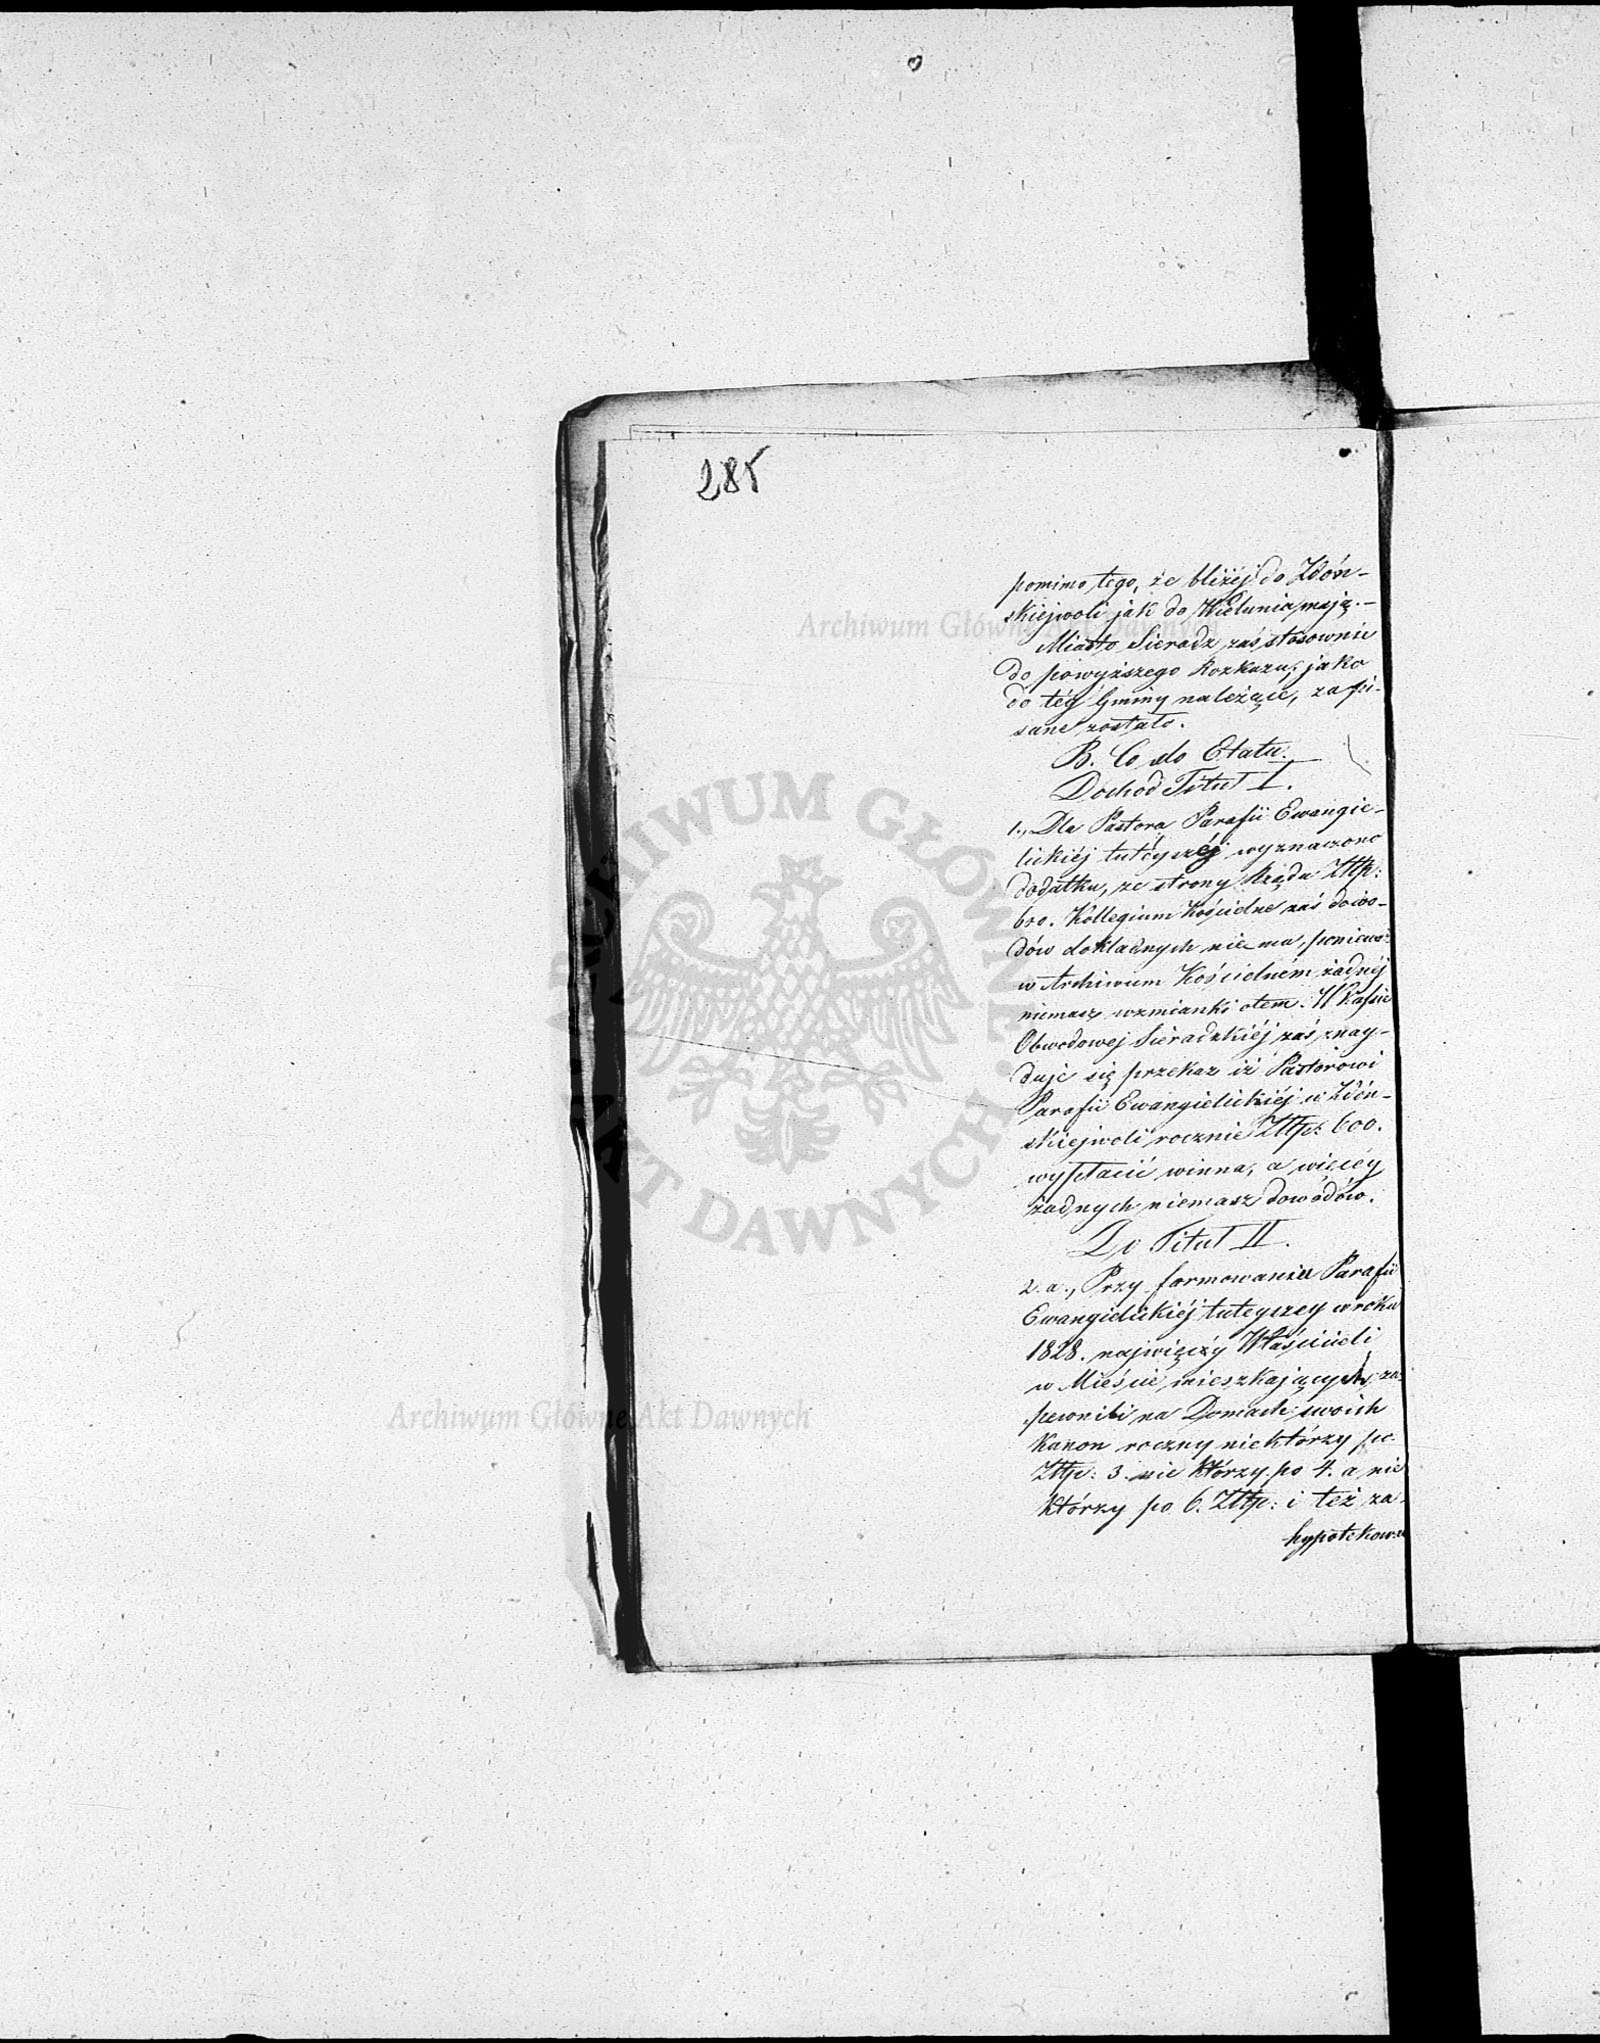 285
pomimo tego, że bliżéj do Zdóń-
skiejwoli jak do Wielunia mają.-
Miasto Sieradz zaś stósownie
do powyższego Rozkazu, jako
do téy Gminy należące, zapi-
sane zostało.
B. Co do Etatu.
Dochód Tituł I.
1., Dla Pastora Parafii Ewangie-
lickiéj tutéyszéj wyznaczono
dodatku, ze strony Rządu Złtp:
600. Kollegium Kościelne zaś dowo-
dów dokładnych nie ma, ponieważ
w Archiwum Kościelném żadnéj
niemasz wzmianki otem. W Kassie
Obwodowej Sieradzkiéj zaś znay-
duje się przekaz iż Pastorowi
Parafii Ewangielickiéj w Zdóń-
skiejwoli rocznie Złtp: 600.
wypłacić winna, a więcéy
żadnych niemasz dowodów.
Do Tituł II.
2. a., Przy formowaniu Parafii
Ewangielickiéj tuteyszey w roku
1828. najwięcéy Właścicieli
w Mieście mieszkających, za-
pewnili na Domach swoich
Kanon roczny niektórzy po
Złtp: 3. nie którzy po 4. a nie
którzy po 6. Złtp: i też za-
hypotekowa
Archiwum Główne Akt Dawnych
Archiwum Główne Akt Dawnych
ARCHIWUM GŁÓWNE AKT DAWNYCH